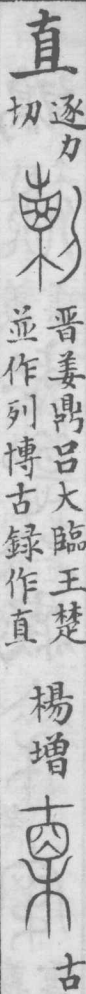 直
逐力
切
晋姜鼎吕大臨王楚
並作列博古録作直
楊增
古